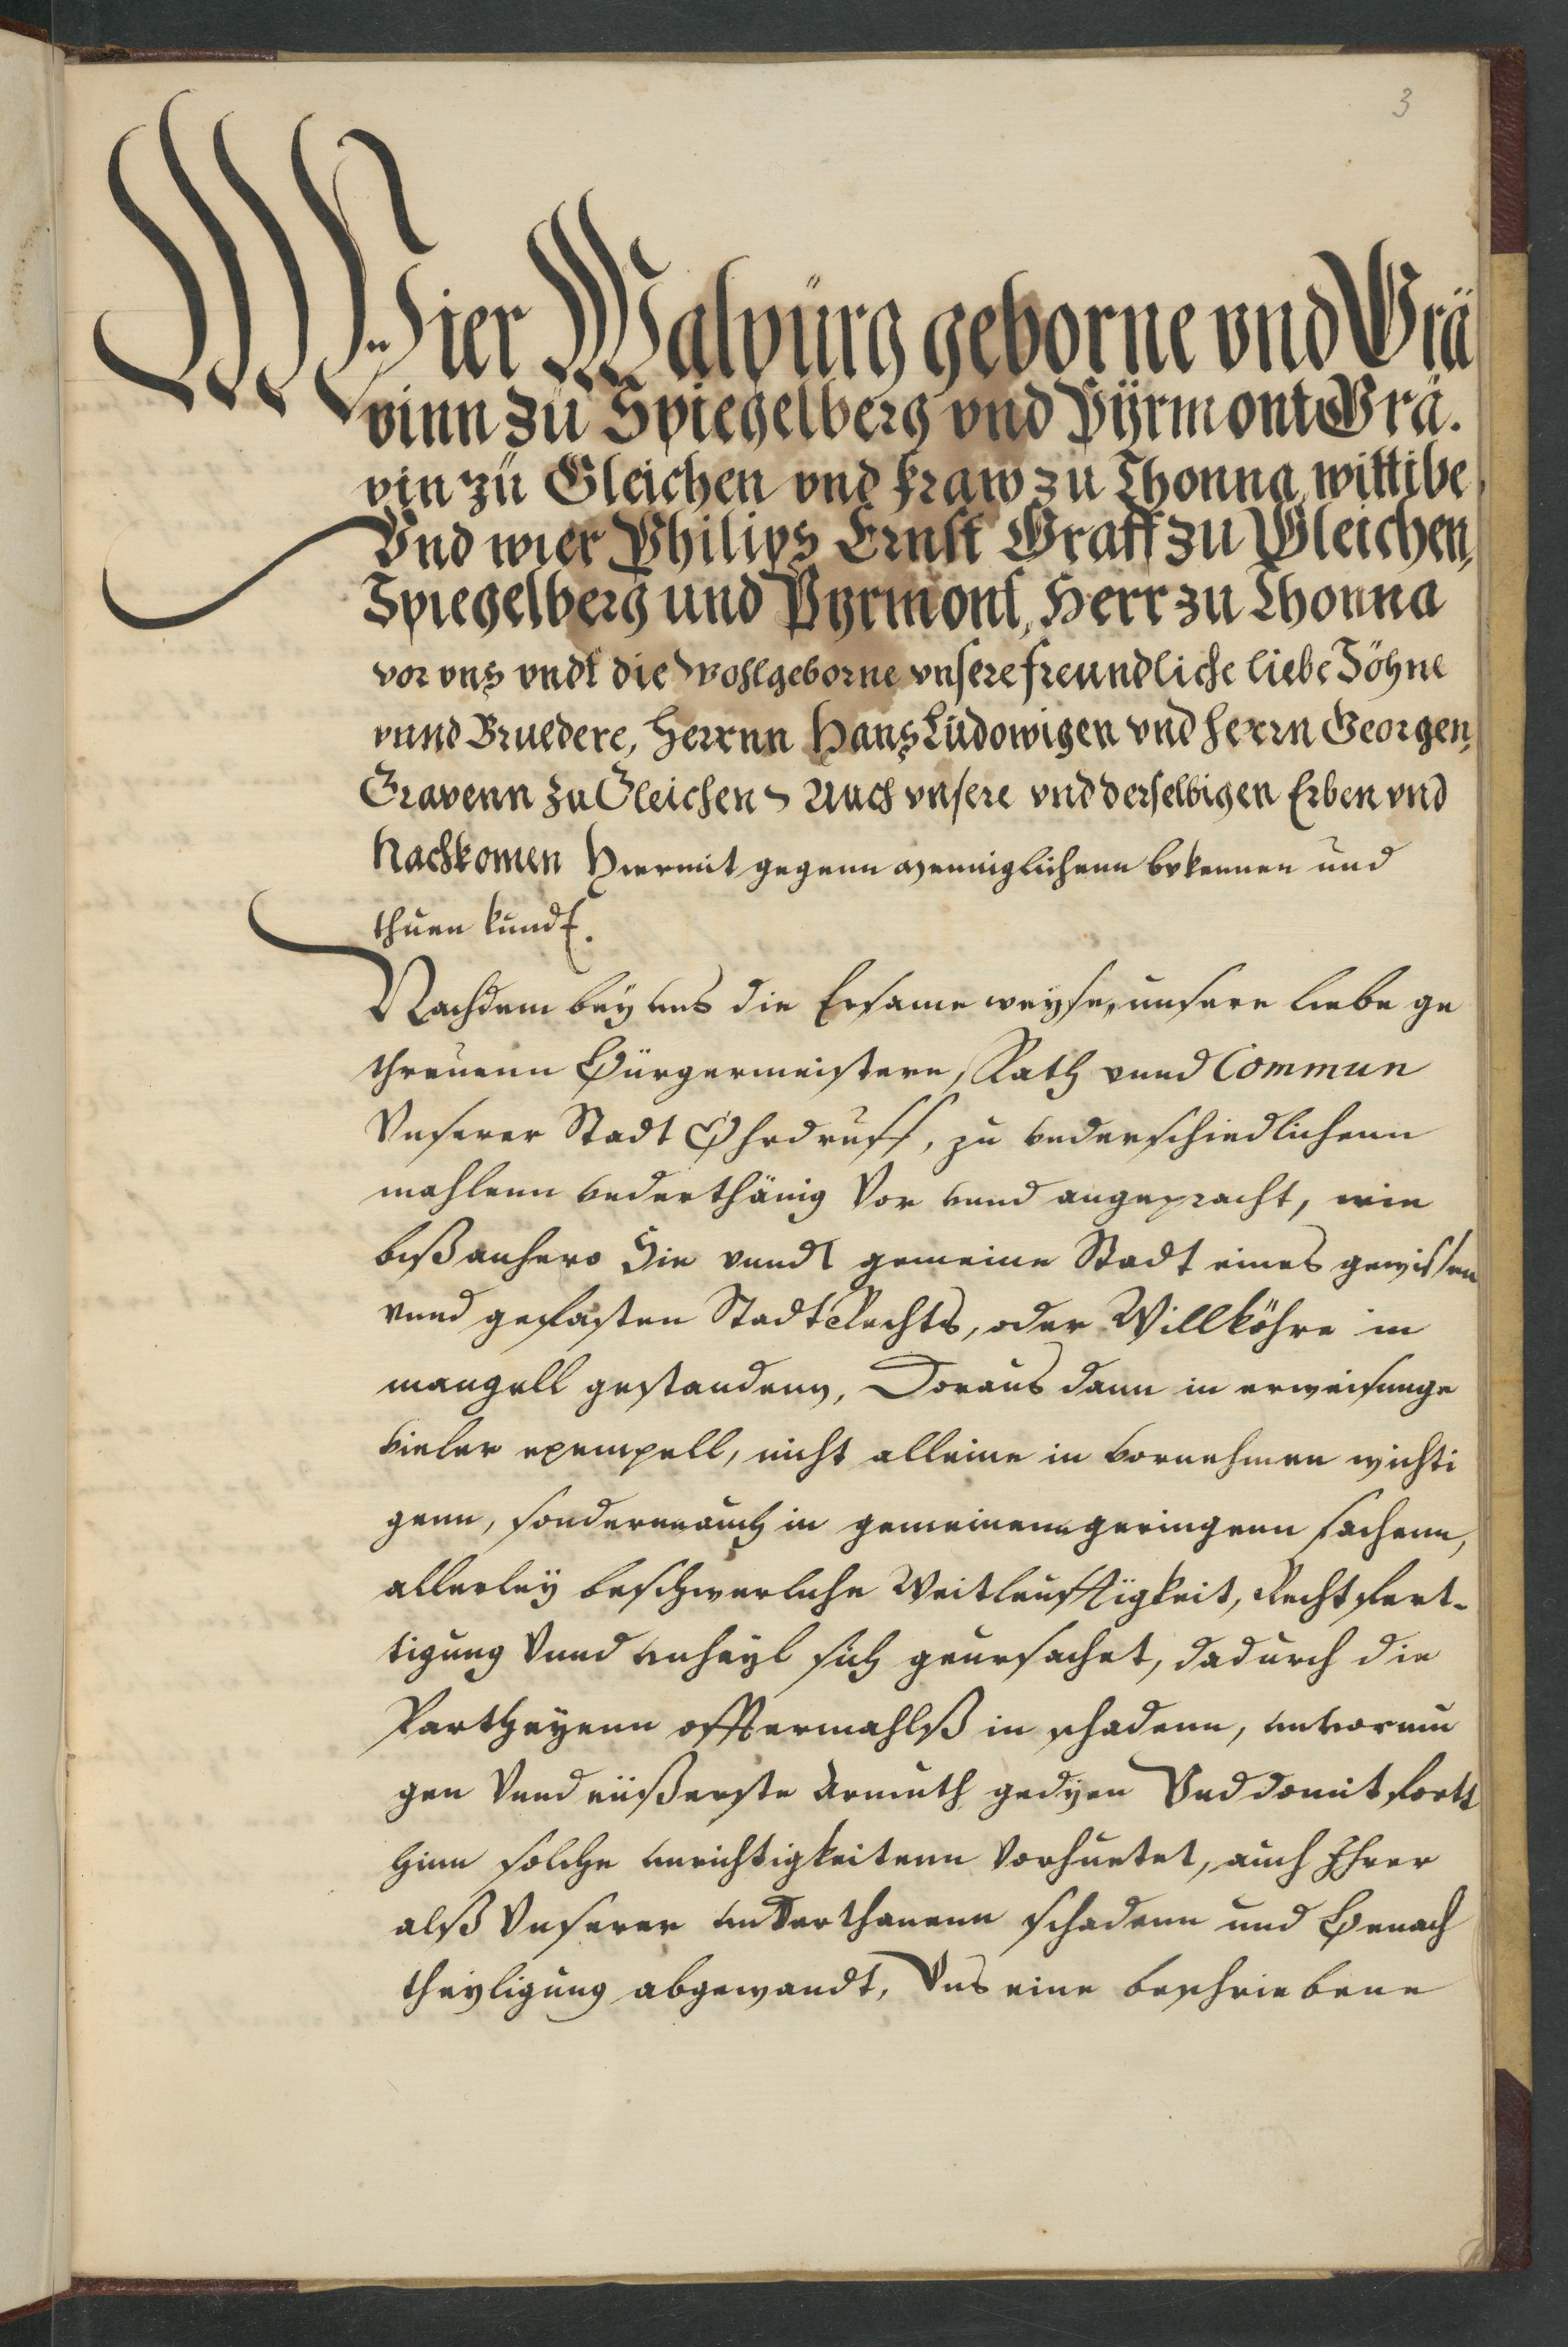 3
Wier Walpürg geborne vnd Grä
vinn zü Spiegelberg vnd Pÿrmont Grä.
vin zü Gleichen vnd fraw zu Thonna, wittibe,
Vnd wier Philips Ernst Graff zu Gleichen,
Spiegelberg und Pyrmont, Herr zu Thonna
vor vns vndt die Wohlgeborne vnsere freundliche liebe Söhne
vnnd Bruedere, Herrnn Hans Lüdowigen vnd Herrn Georgen,
Gravenn zu Gleichen Auch vnsere vnd derselbigen Erben vnd
Nachkomen Hiermit gegenn menniglichenn bekennen und
thuen kundt.
Nachdem beÿ vns die Ersame weyse, unsere liebe ge
threuenn Bürgermeistere, Rath vnnd Commun
Vnserer Stadt Ohrdruff, zu vnderschiedlichenn
mahlenn vnderthänig Vor vnnd angepracht, wie
biß anhero Sie vnndt gemeine Stadt eines gewissen
vnnd gefasten StadtRechts, oder Willköhre in
mangell gestandenn, Doraus dann in erweisunge
vieler exempell, nicht alleine in vornehmen wichti
genn, sondernn auch in gemeinenn geringenn sachenn,
allerleÿ beschwerliche Weitleufftigkeit, Rechtfert-
tigung Vnnd vnheyl sich geursachet, dadurch die
Partheyenn offtermahlß in schadenn, vnvormu
gen Vnnd eüßerste Armuth gedyen Vnd domit fortt
hinn solche vnrichtigkeitenn Vorhuetet, auch Ihrer
alß Vnserer vnderthanenn schadenn und Benach
theyligung abgewandt, Vns eine beschriebene